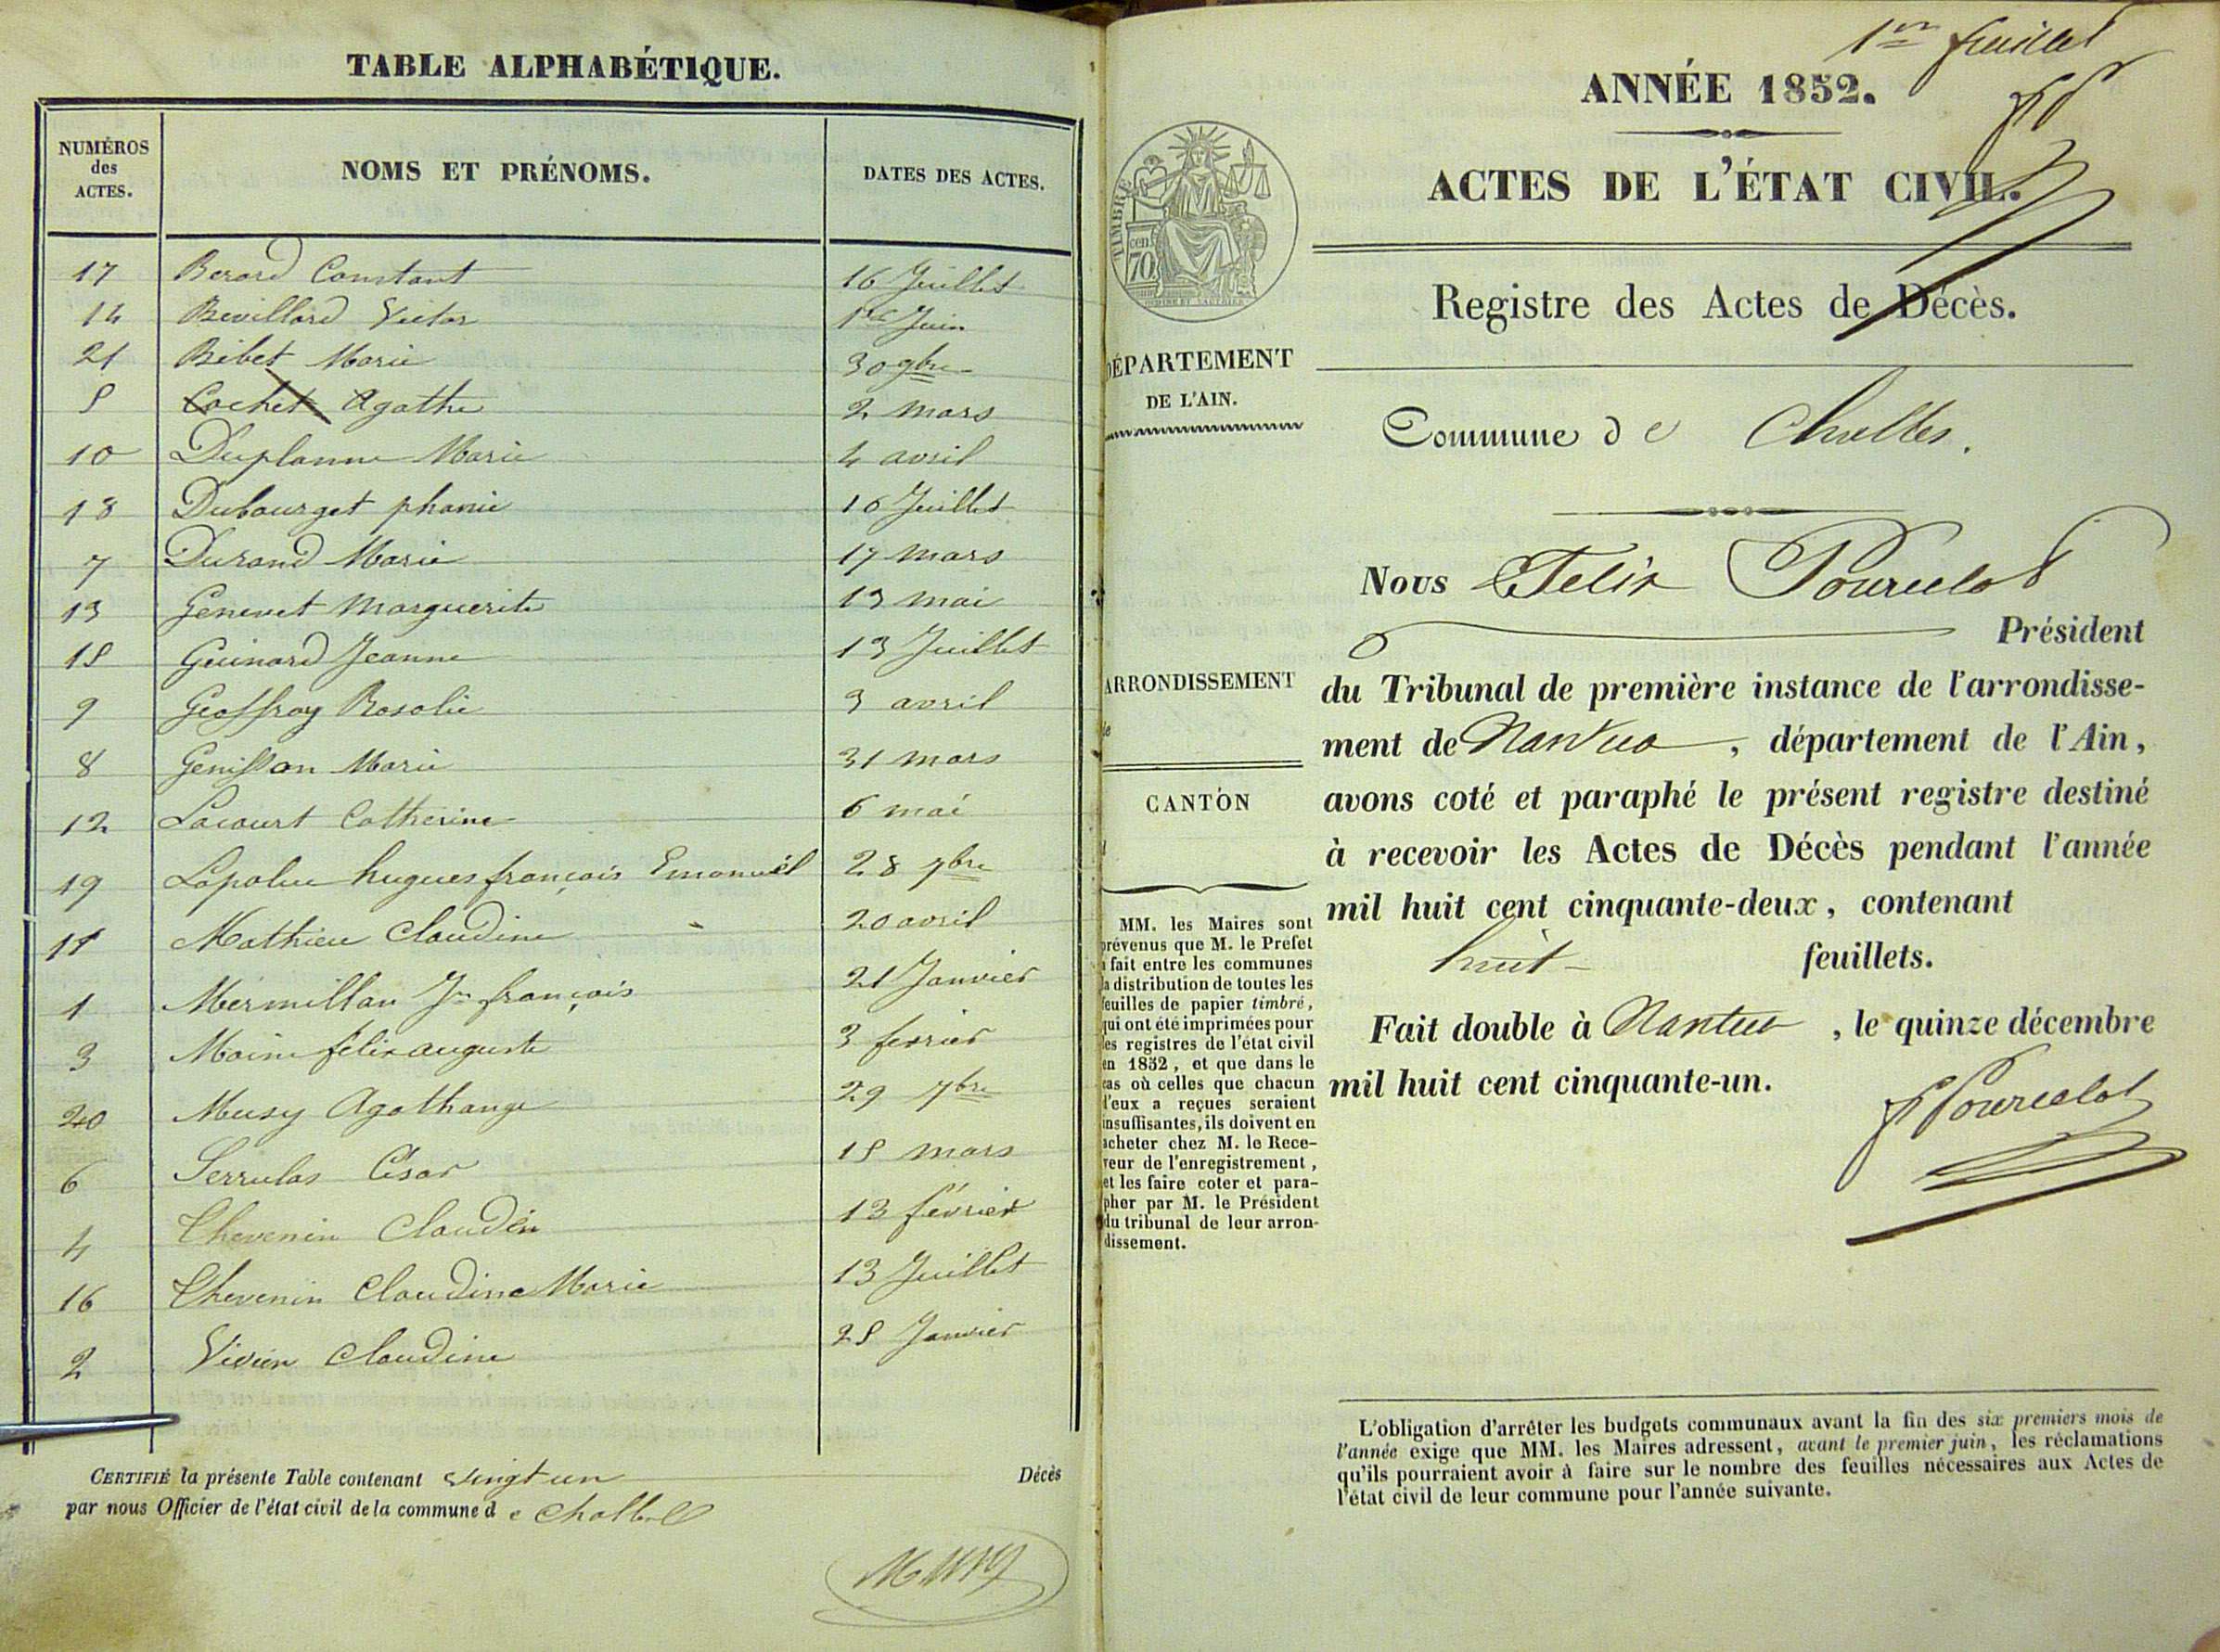 TABLE ALPHABÉTIQUE.
NUMÉROS
des
ACTES.
NOMS ET PRÉNOMS.
DATES DES ACTES.
17 Berard Constant 16 Juillet
14 Bevillard Victor 1er Juin
21 Bibet Marie 30 9bre
5 Cochet Agathe 2 mars
10 Duplanne Marie 4 avril
18 Dubourget phanie 16 Juillet
7 Durand Marie 17 mars
13 Genevet Marguerite 13 mai
15 Guinard Jeanne 13 Juillet
9 Geoffray Rosalie 3 avril
8 Genisson Marie 31 mars
12 Lacourt Catherine 6 mai
19 Lapalue hugues françois Emanuel 28 7bre
11 Mathieu Claudine 20 avril
1 Mermillon Jn françois 21 Janvier
3 Moine felix auguste 3 fevrier
20 Musy Agathange 29 7bre
6 Serrulas César 15 mars
4 Thevenin Claudin 13 février
16 Thevenin Claudine Marie 13 Juillet
2 Vivien Claudine 25 Janvier
CERTIFIÉ la présente Table contenant vingt un Décès
par nous Officier de l'état civil de la commune d e Challes
1er feuillet
ANNÉE 1852.
ACTES DE L'ÉTAT CIVIL.
TIMBRE
cen.
70
Registre des Actes de Décès.
DÉPARTEMENT
DE L'AIN.
Commune d e Challes.
Nous Felix Pourcelot
Président
ARRONDISSEMENT
du Tribunal de première instance de l'arrondisse-
de
ment de Nantua, département de l'Ain,
CANTON
avons coté et paraphé le présent registre destiné
à recevoir les Actes de Décès pendant l'année
mil huit cent cinquante-deux, contenant
huit feuillets.
Fait double à Nantua, le quinze décembre
mil huit cent cinquante-un.
F Pourcelot
MM. les Maires sont
prévenus que M. le Préfet
a fait entre les communes
la distribution de toutes les
feuilles de papier timbré,
qui ont été imprimées pour
les registres de l'état civil
en 1852, et que dans le
cas où celles que chacun
d'eux a reçues seraient
insuffisantes, ils doivent en
acheter chez M. le Rece-
veur de l'enregistrement,
et les faire coter et para-
pher par M. le Président
du tribunal de leur arron-
dissement.
L'obligation d'arrêter les budgets communaux avant la fin des six premiers mois de
l'année exige que MM. les Maires adressent, avant le premier juin, les réclamations
qu'ils pourraient avoir à faire sur le nombre des feuilles nécessaires aux Actes de
l'état civil de leur commune pour l'année suivante.